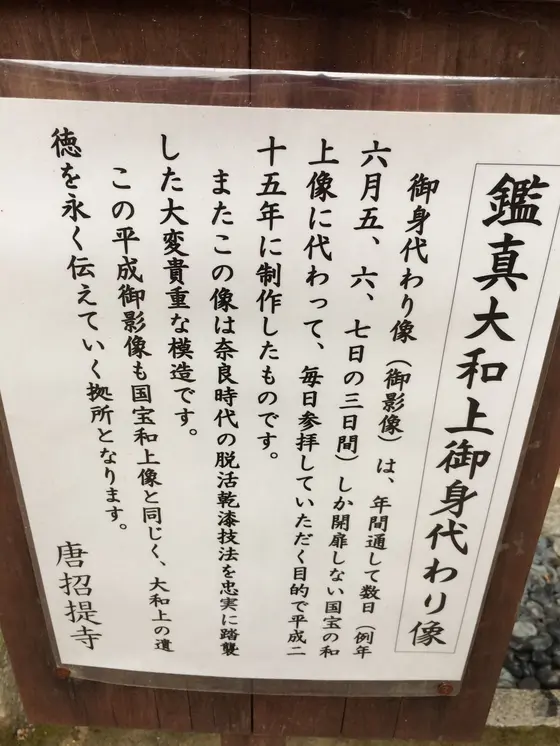 鑑真大和上御身代わり像
御身代わり像（御影像）は、年間通して数日（例年
六月五、六、七日の三日間）しか開扉しない国宝の和
上像に代わって、毎日参拝していただく目的で平成二
十五年に制作したものです。
またこの像は奈良時代の脱活乾漆技法を忠実に踏襲
した大変貴重な模造です。
この平成御影像も国宝和上像と同じく、大和上の遺
徳を永く伝えていく拠所となります。
唐招提寺